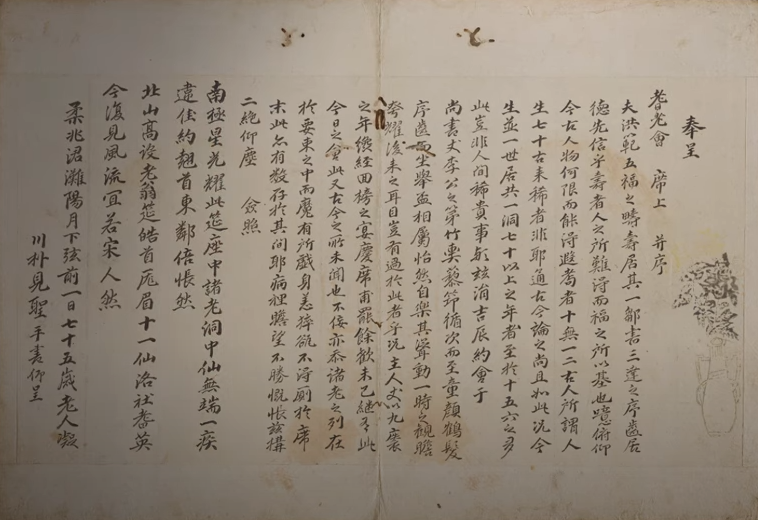 奉呈
耆老會 席上 幷序
夫洪範五福之疇壽居其一鄒書三達之序齒居
德先信乎壽者人之所難得而福之所以基也噫俯仰
今古人物何限而能得躋耈者十無一二古人所謂人
生七十古來稀者非耶通古今論之尚且如此況今
生並一世居共一洞七十以上之年者至於十五六之多
此豈非人間稀貴事耶玆涓吉辰約會于
尚書丈李公之第竹嬰藜筇循次而至童顔鶴髮
序齒而坐擧盃相屬怡然自樂其聳動一時之觀瞻
誇耀後來之耳目豈有過於此者乎況主人丈以九袠
之年纔經回榜之宴慶席甫罷餘歡未已繼有此
今日之會此又古今之所未聞也不佞亦忝諸老之列在
於要束之中而魔有所戱身恙猝欲不得厠於席
末此亦有數存於其間耶病裡瞻望不勝慨悵玆搆
二絶仰塵 僉照
南極星光耀此筵座中諸老洞中仙無端一疾
違佳約翹首東鄰倍悵然
北山高設老翁筵皓首厖眉十一仙洛社耆英
今復見風流宜若宋人然
柔兆涒灘陽月下弦前一日七十五歲老人凝
川朴見聖手書仰呈